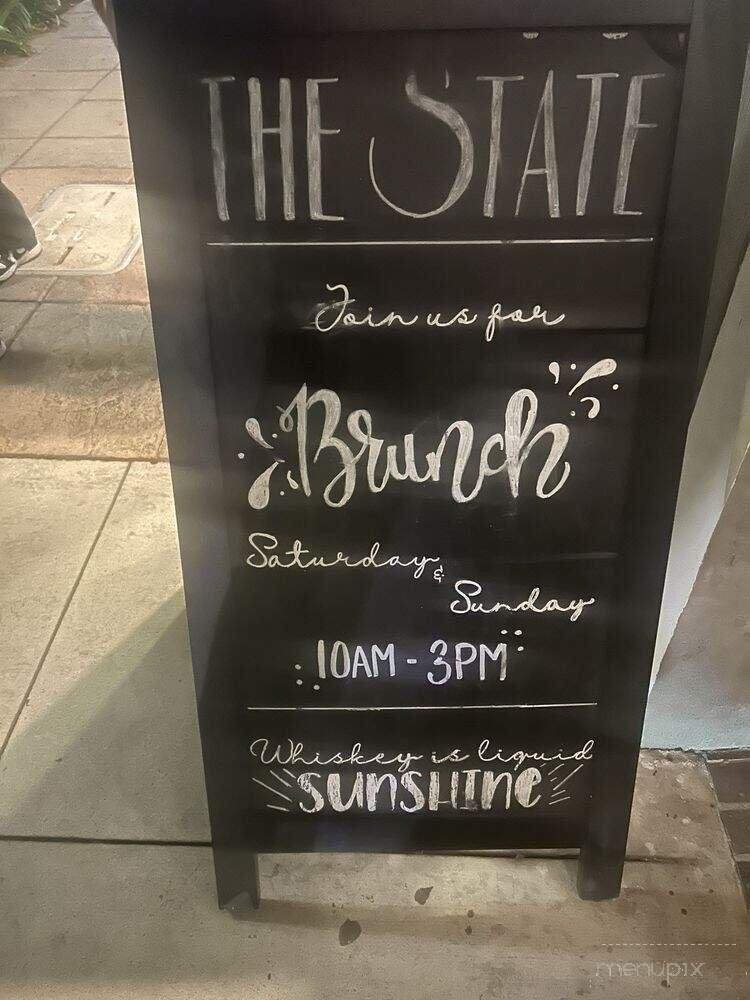 THE STATE
Join us for
Brunch
Saturday
&
Sunday
10AM - 3PM
Whiskey is liquid
sunshine
menupix